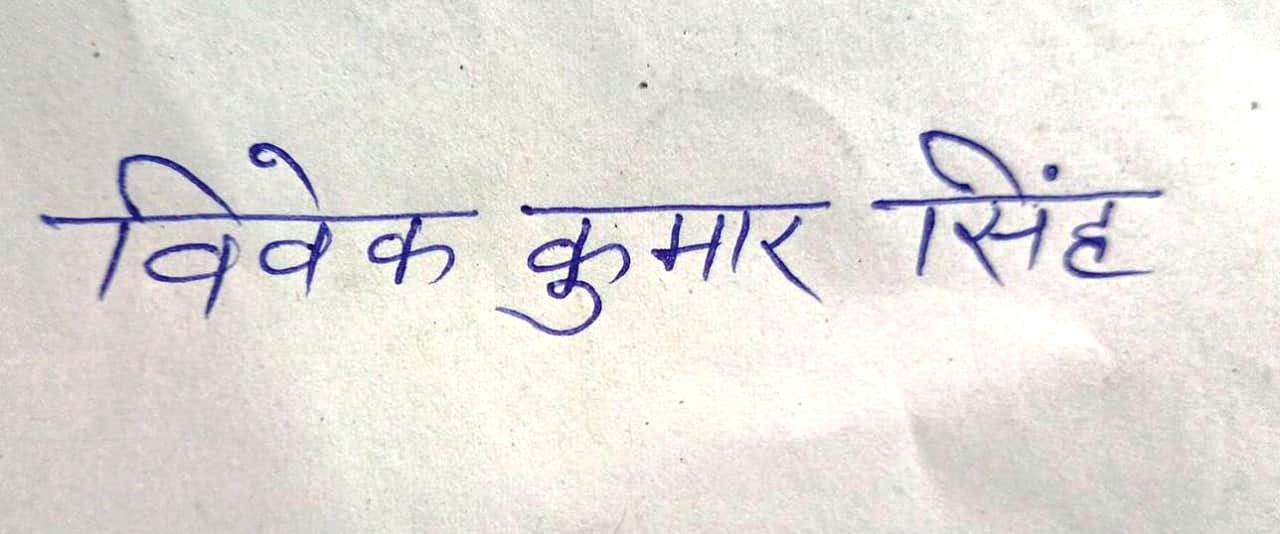 विवेक कुमार सिंह